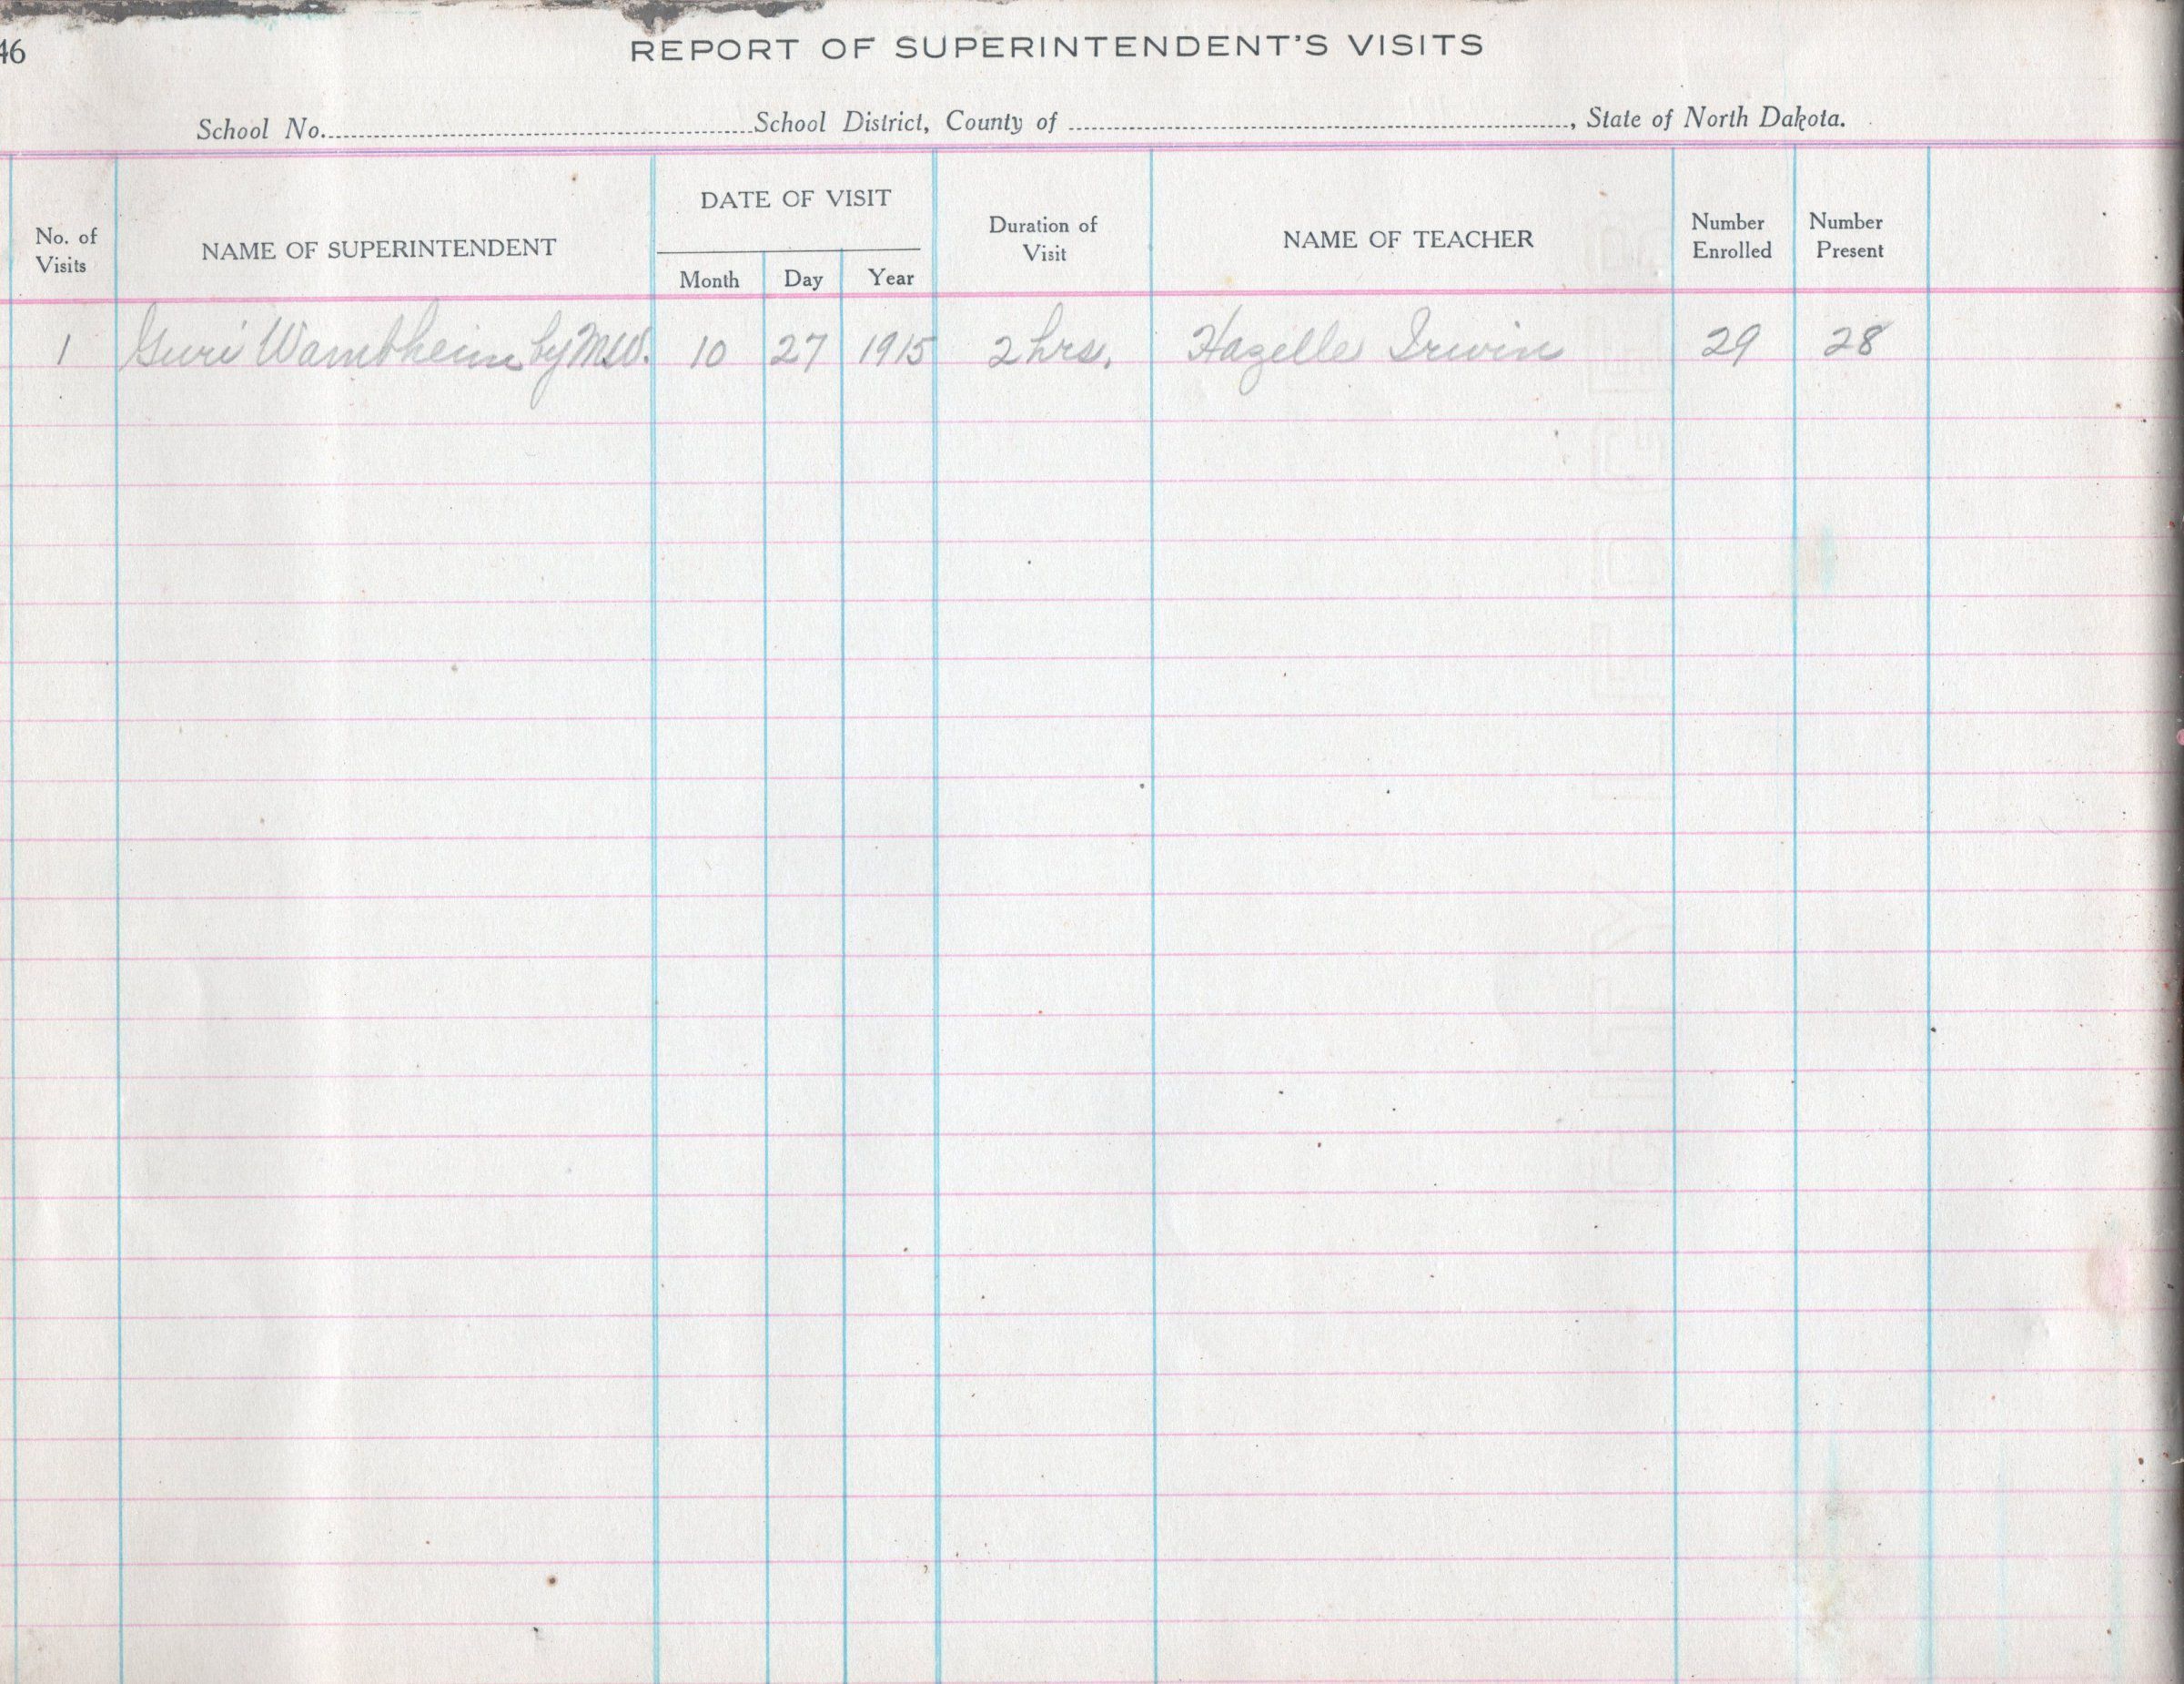 46
REPORT OF SUPERINTENDENT'S VISITS
School No. School District, County of , State of North Dakota.
No. of Visits NAME OF SUPERINTENDENT DATE OF VISIT Month Day Year Duration of Visit NAME OF TEACHER Number Enrolled Number Present
1 Guri Wambheim by MW. 10 27 1915 2 hrs. Hazelle Irwin 29 28